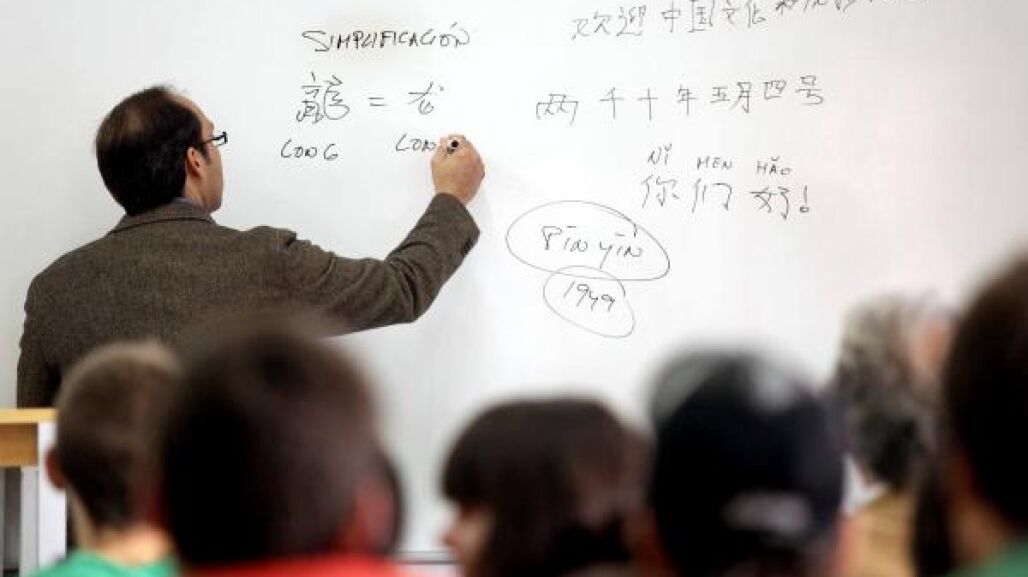 SIMPLIFICACIÓN
龍 = 龙
LONG LON
欢迎 中国文化
两千十年五月四号
NǏ MEN HǍO
你们好!
PĪN YĪN
1949